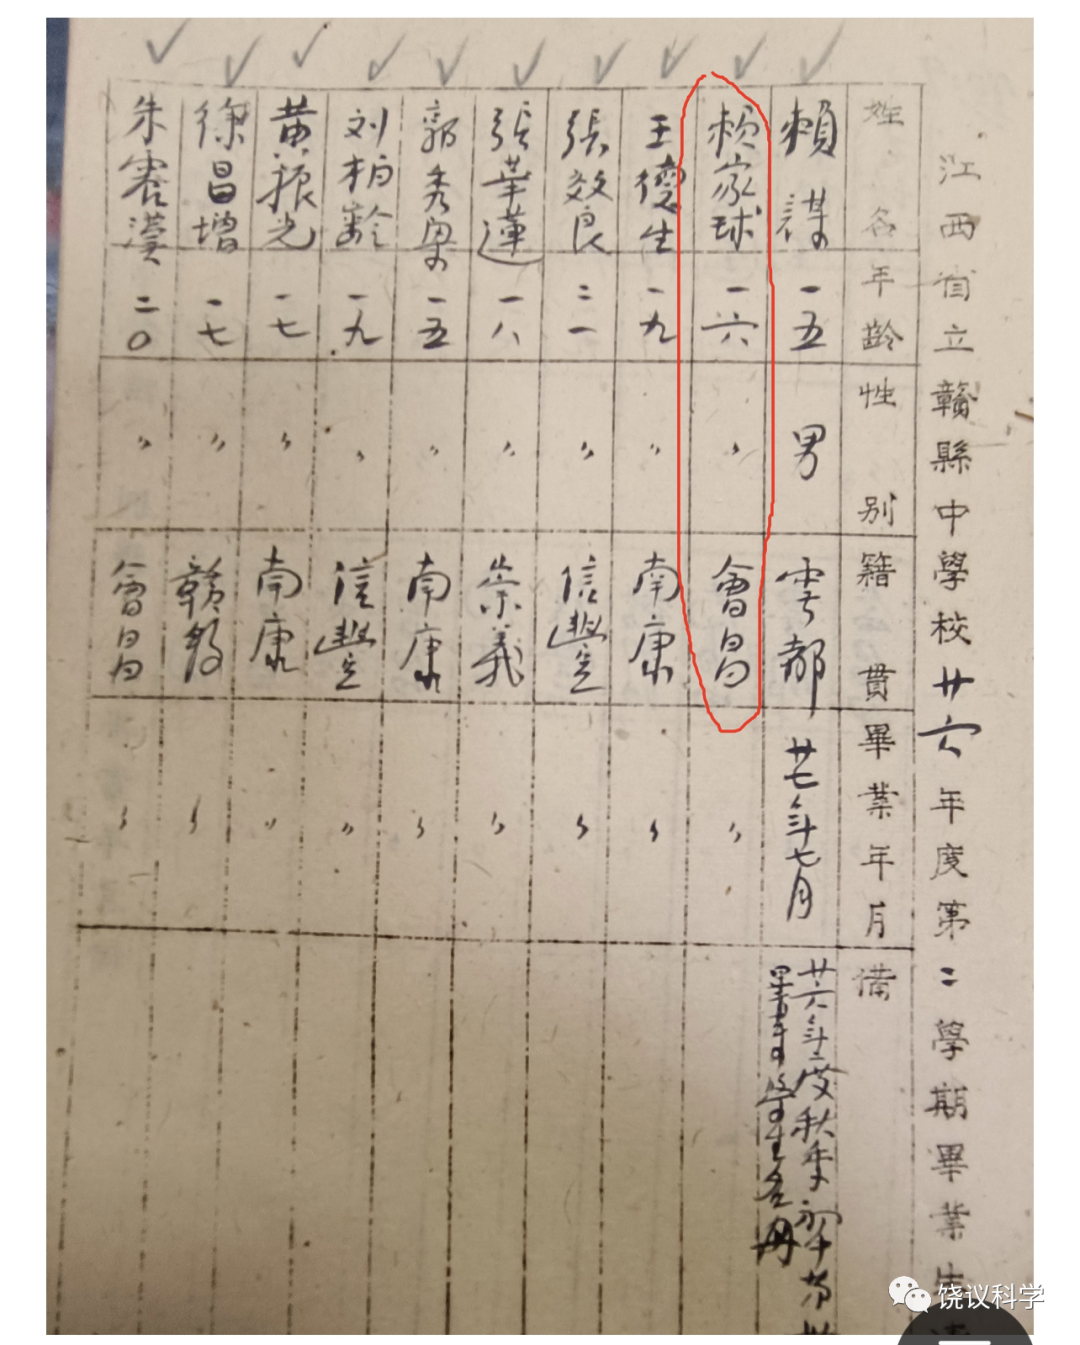 江西省立贛縣中學校廿六年度第二學期畢業生
姓名 年齡 性別 籍貫 畢業年月 備
賴謀 一五 男 雩都 廿七年七月 廿六年度秋季初中
畢業學生名册
赖家球 一六 〃 會昌 〃
王德生 一九 〃 南康 〃
張效良 二一 〃 信豐 〃
張華蓮 一八 〃 崇義 〃
郭秀 一五 〃 南康 〃
刘柏齡 一九 〃 信豐 〃
黄振光 一七 〃 南康 〃
徐昌增 一七 〃 贛縣 〃
朱 漢 二〇 〃 會昌 〃
饶议科学